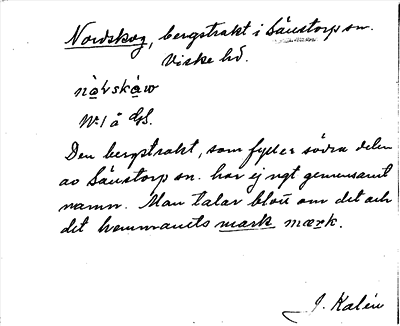 Nordskog, bergstrakt i Sänstorp sn.
Viske hd.
Den bergstrakt, som fyller södra delen
av Sänstorp sn. har ej ngt gemensamt
namn. Man talar blott om det och
det hemmanets mark mærk.
J. Kalén